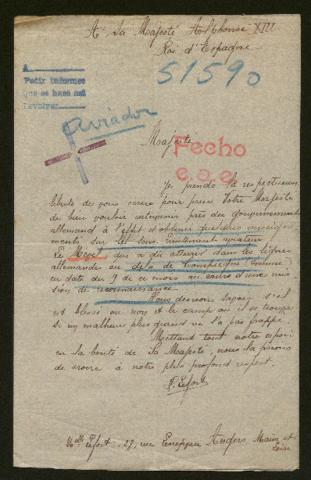 A Sa Majesté Alphonse XIII
Roi d'Espagne
51590
A
Pedir informes
Que se hace set
Devolver
Aviador
Majesté
Fecho
e.o.e.
Je prends la respectueuse
liberté de vous écrire pour prier Votre Majesté
de bien vouloir auprès du Gouvernement
allemand à l'effet d'obtenir quelques renseigne-
ments sur le sous lieutenant aviateur
Le qui a dû atterrir dans les lignes
allemandes au delà de Compiègne
en date du 9 de ce mois au cours d'une mis
sion de reconnaissance.
Nous désirons savoir s'il
est blessé ou non et le camp où il se trouve
si un malheur plus grand ne l'a pas frappé.
Mettant tout notre espoir
en la bonté de Sa Majesté, nous la prions
de croire à notre plus profond respect.
Lefort
Lefort 27, rue Angers, Maine et
Loire